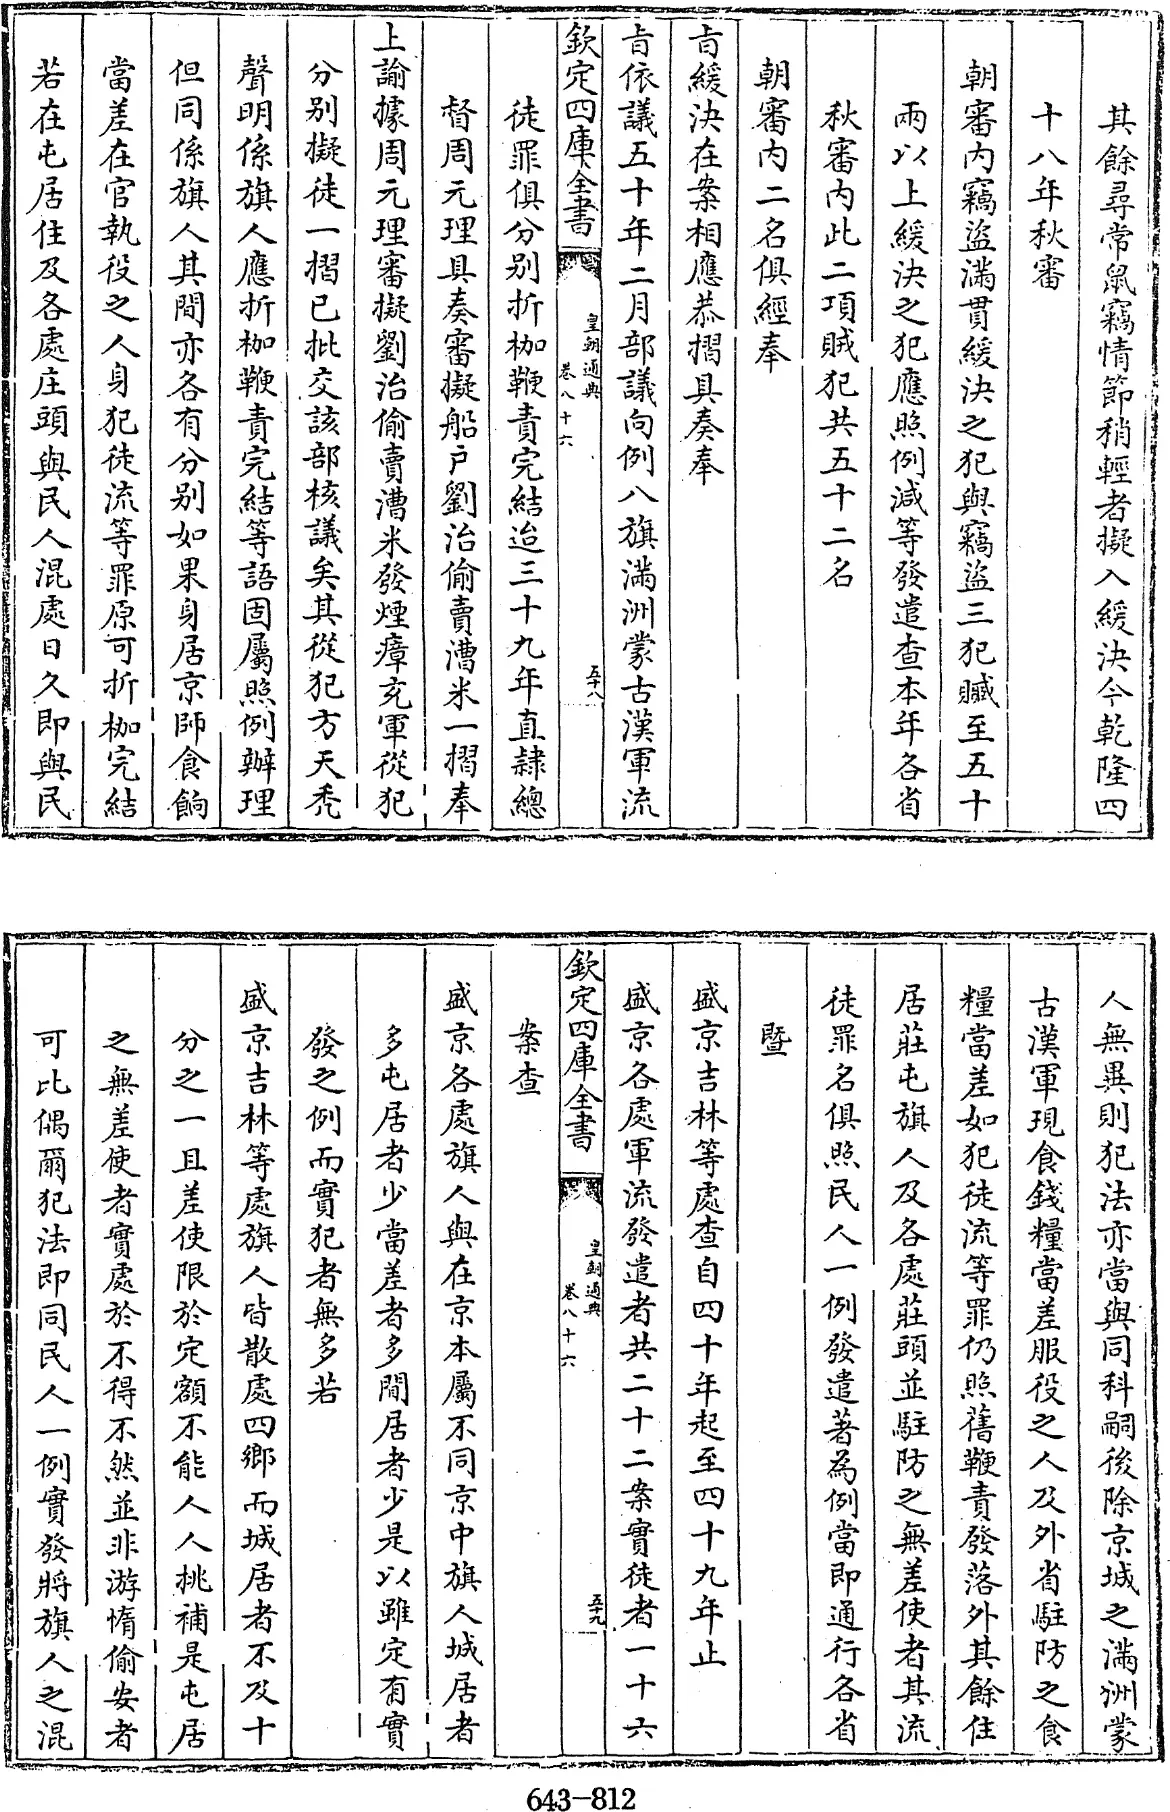 其餘尋常鼠竊情節稍輕者擬入緩決今乾隆四
十八年秋審
朝審內竊盜滿貫緩決之犯與竊盜三犯贓至五十
兩以上緩決之犯應照例減等發遣查本年各省
秋審內此二項賊犯共五十二名
朝審內二名俱經奉
旨緩決在案相應恭摺具奏奉
旨依議五十年二月部議向例八旗滿洲蒙古漢軍流
欽定四庫全書
皇朝通典
卷八十六
五十八
徒罪俱分別折枷鞭責完結迨三十九年直隸總
督周元理具奏審擬船戶劉治偷賣漕米一摺奉
上諭據周元理審擬劉治偷賣漕米發煙瘴充軍從犯
分別擬徒一摺已批交該部核議矣其從犯方天禿
聲明係旗人應折枷鞭責完結等語固屬照例辦理
但同係旗人其間亦各有分別如果身居京師食餉
當差在官執役之人身犯徒流等罪原可折枷完結
若在屯居住及各處庄頭與民人混處日久即與民
人無異則犯法亦當與同科嗣後除京城之滿洲蒙
古漢軍現食錢糧當差服役之人及外省駐防之食
糧當差如犯徒流等罪仍照舊鞭責發落外其餘住
居莊屯旗人及各處莊頭並駐防之無差使者其流
徒罪名俱照民人一例發遣著為例當即通行各省
暨
盛京吉林等處查自四十年起至四十九年止
盛京各處軍流發遣者共二十二案實徒者一十六
欽定四庫全書
皇朝通典
卷八十六
五十九
案查
盛京各處旗人與在京本屬不同京中旗人城居者
多屯居者少當差者多閒居者少是以雖定有實
發之例而實犯者無多若
盛京吉林等處旗人皆散處四鄉而城居者不及十
分之一且差使限於定額不能人人挑補是屯居
之無差使者實處於不得不然並非游惰偷安者
可比偶爾犯法即同民人一例實發將旗人之混
643-812